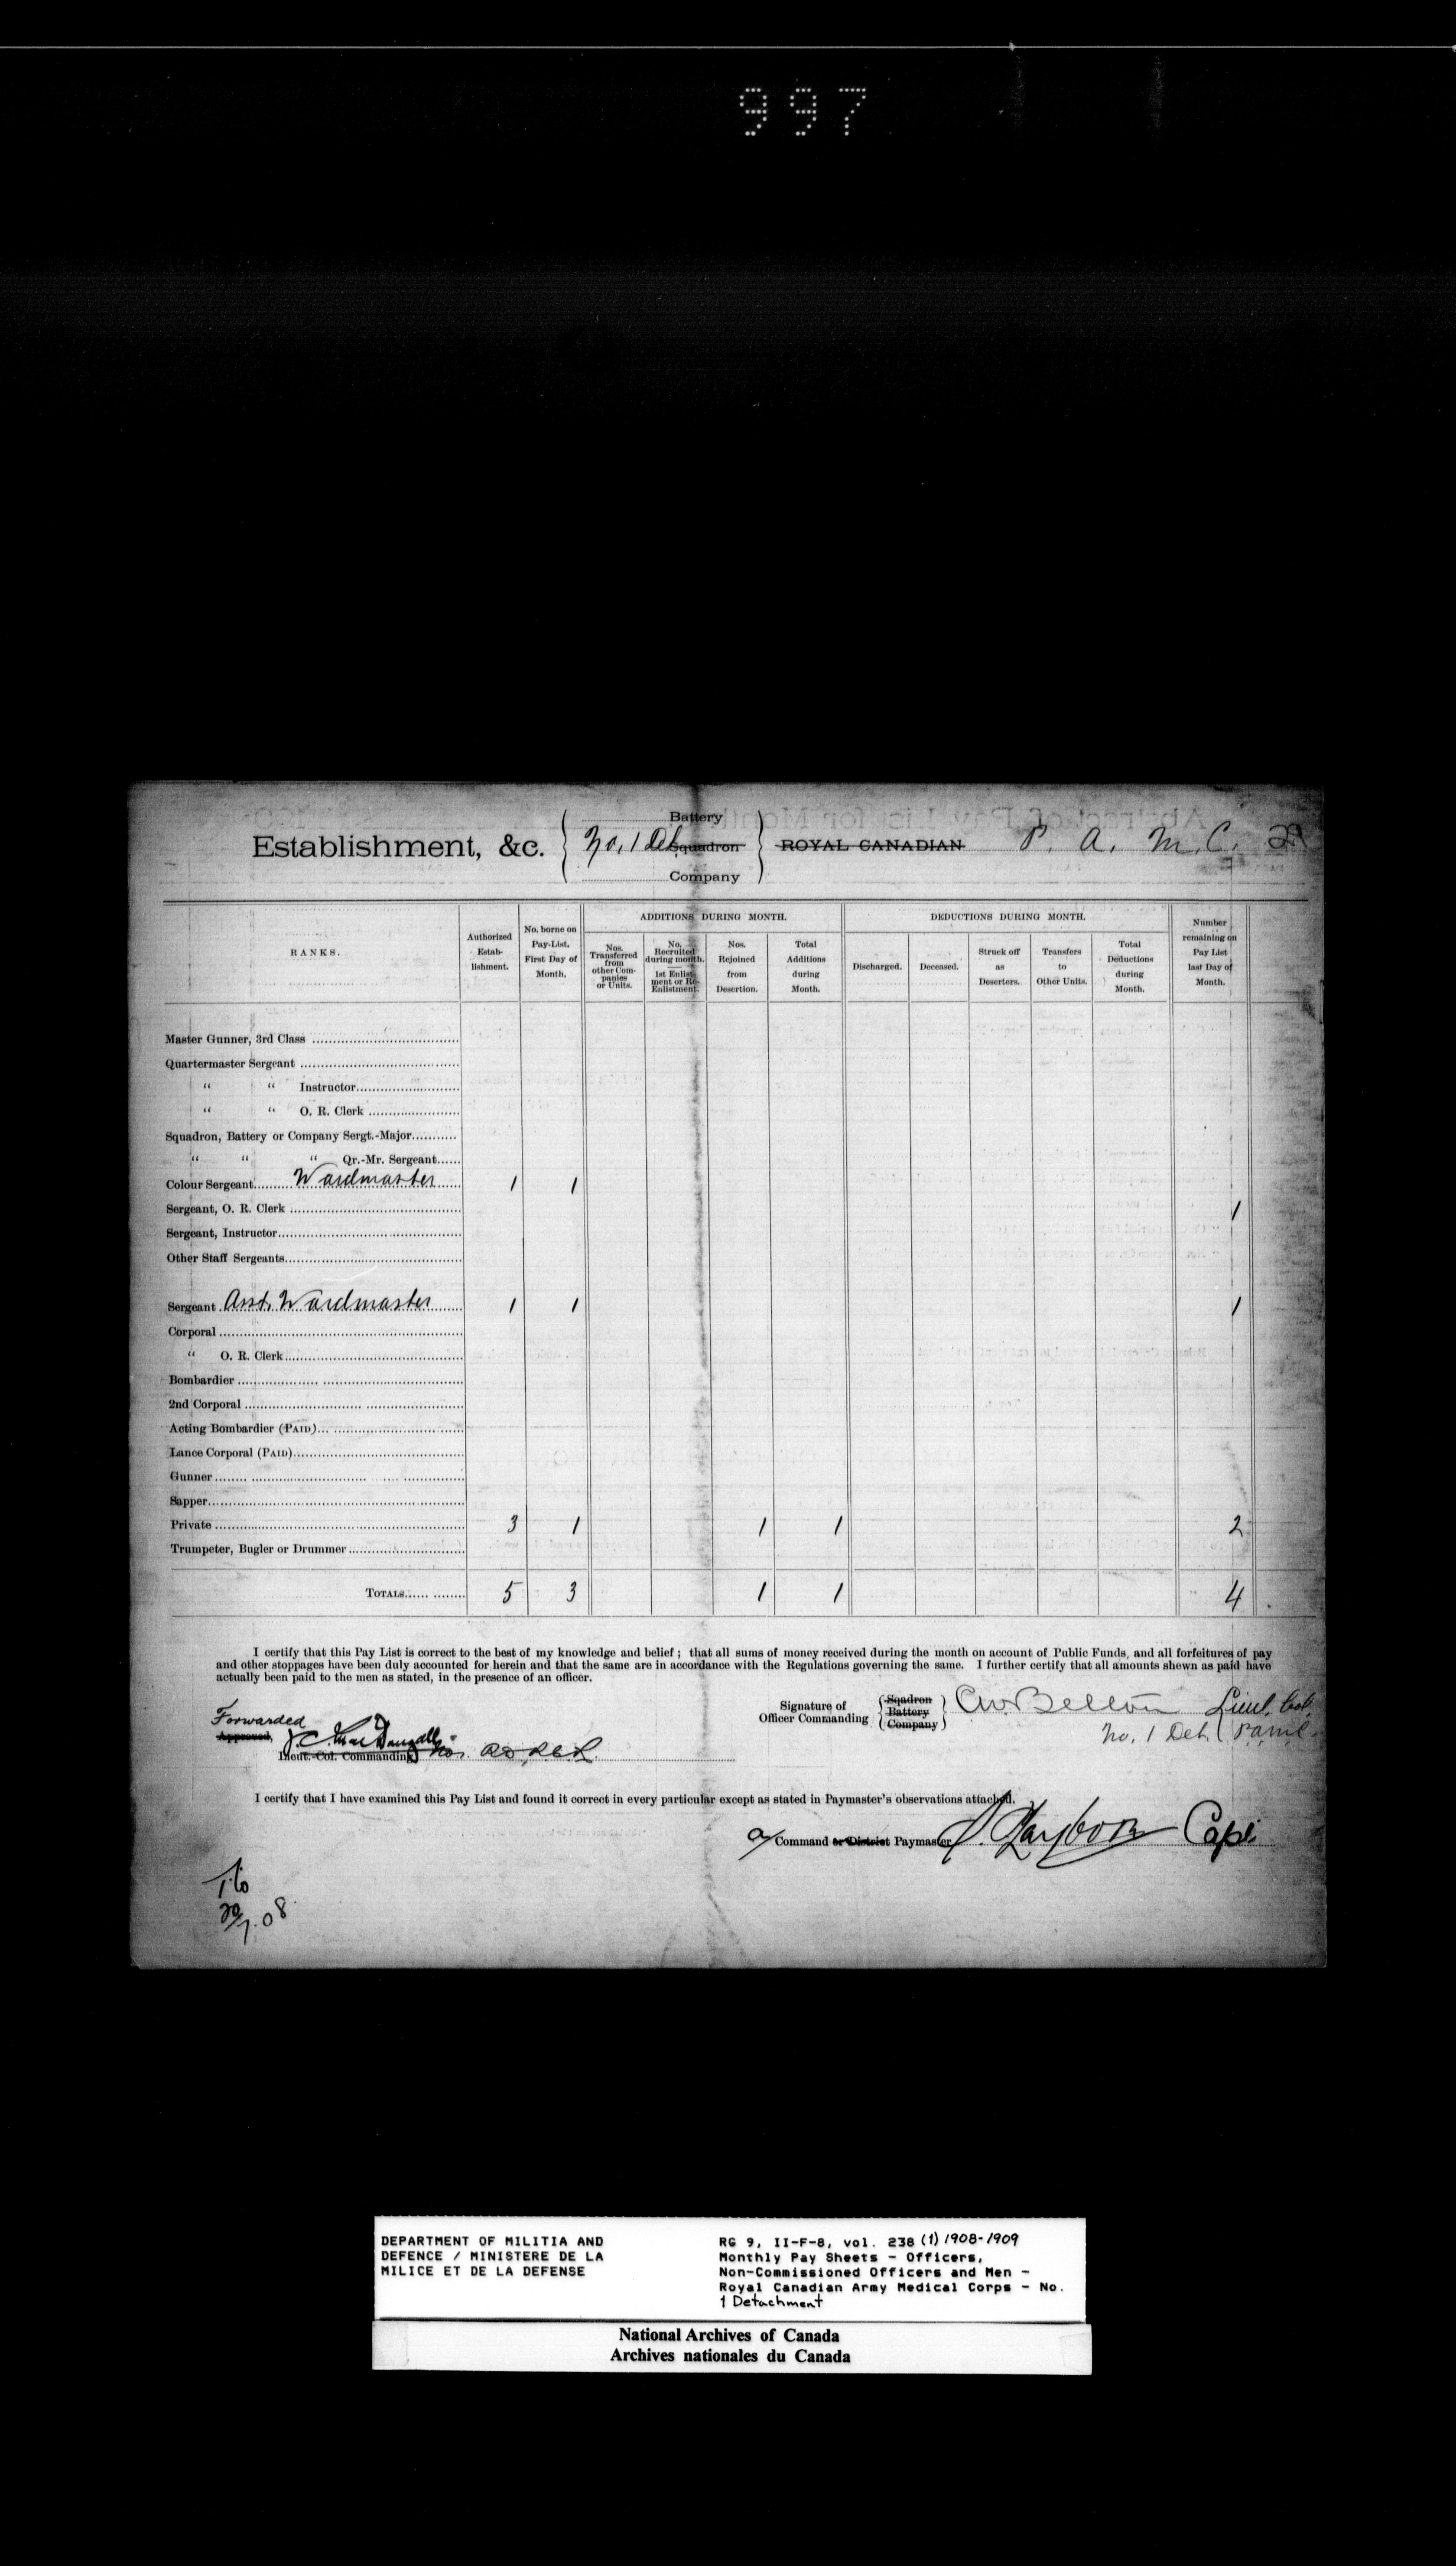 997
Battery
Establishment, &c. No. 1 Det. Squadron ROYAL CANADIAN P. A. M. C.
Company
RANKS.
Authorized Establishment.
No. borne on Pay-List, First Day of Month.
ADDITIONS DURING MONTH.
Nos. Transferred from other Companies or Units.
No. Recruited during month. 1st Enlistment or Re-Enlistment.
Nos. Rejoined from Desertion.
Total Additions during Month.
DEDUCTIONS DURING MONTH.
Discharged.
Deceased.
Struck off as Deserters.
Transfers to Other Units.
Total Deductions during Month.
Number remaining on Pay List last Day of Month.
Master Gunner, 3rd Class
Quartermaster Sergeant
“ “ Instructor
“ “ O. R. Clerk
Squadron, Battery or Company Sergt.-Major
“ “ “ Qr.-Mr. Sergeant
Colour Sergeant Wardmaster 1 1
Sergeant, O. R. Clerk 1
Sergeant, Instructor
Other Staff Sergeants
Sergeant Asst. Wardmaster 1 1 1
Corporal
“ O. R. Clerk
Bombardier
2nd Corporal
Acting Bombardier (PAID)
Lance Corporal (PAID)
Gunner
Sapper
Private 3 1 1 1 2
Trumpeter, Bugler or Drummer
TOTALS 5 3 1 1 4
I certify that this Pay List is correct to the best of my knowledge and belief ; that all sums of money received during the month on account of Public Funds, and all forfeitures of pay
and other stoppages have been duly accounted for herein and that the same are in accordance with the Regulations governing the same. I further certify that all amounts shewn as paid have
actually been paid to the men as stated, in the presence of an officer.
Signature of Officer Commanding
Sqadron
Battery
Company
Lieut. Col.
No. 1 Det. P.A.M.C.
Forwarded
Approved,
Lieut.-Col. Commanding
I certify that I have examined this Pay List and found it correct in every particular except as stated in Paymaster's observations attached.
a/ Command or District Paymaster Capt.
20/7.08
DEPARTMENT OF MILITIA AND
DEFENCE / MINISTERE DE LA
MILICE ET DE LA DEFENSE
RG 9, II-F-8, vol. 238 (1) 1908-1909
Monthly Pay Sheets - Officers,
Non-Commissioned Officers and Men -
Royal Canadian Army Medical Corps - No.
1 Detachment
National Archives of Canada
Archives nationales du Canada